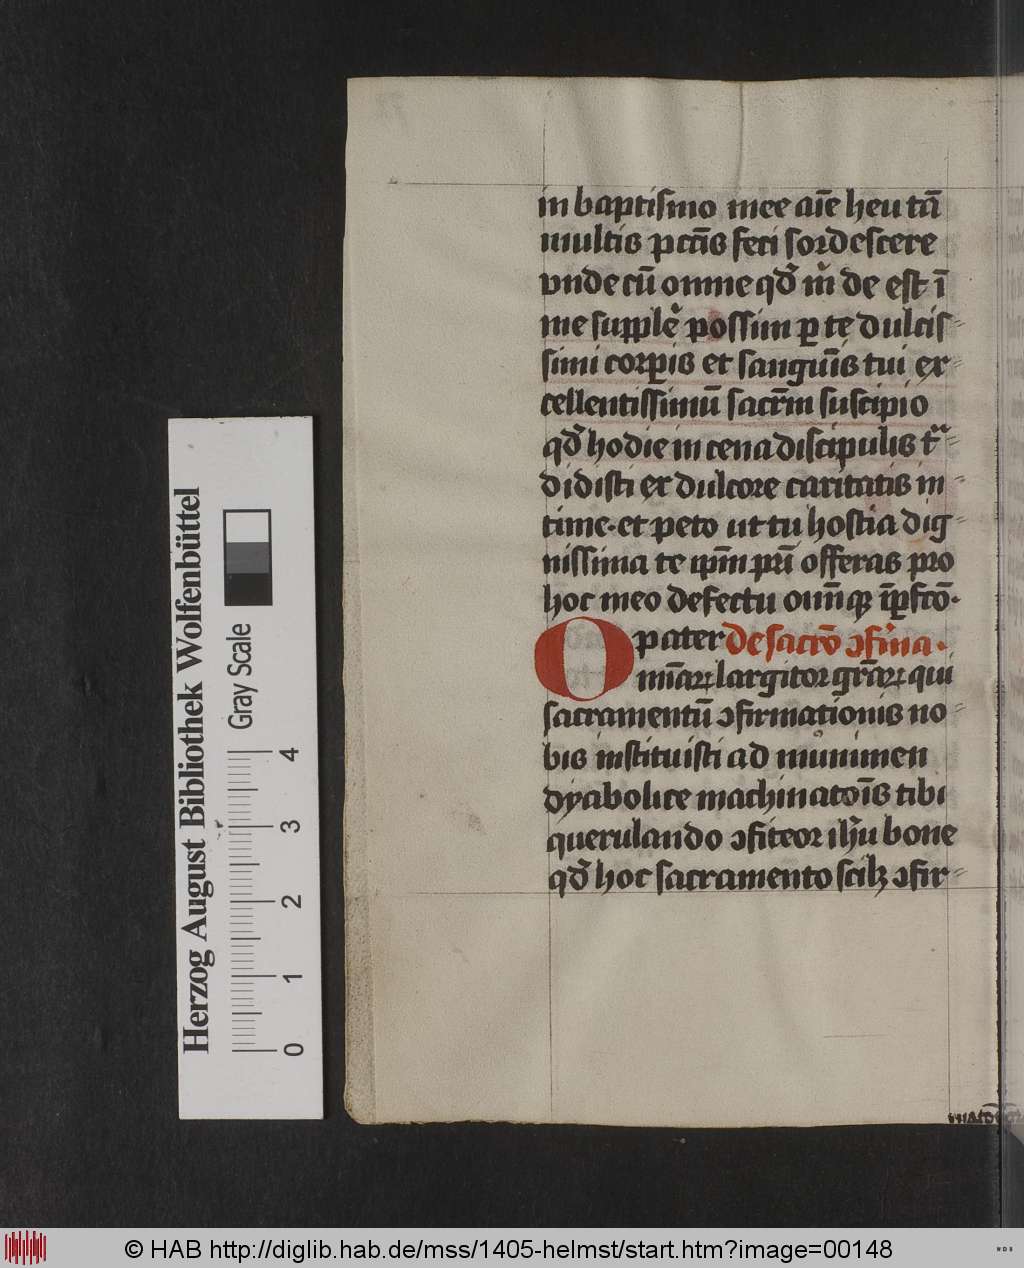 in baptismo mee aīe heu tā
multis pctīs feci sordescere
vnde cū omne qđ m̄ de est ī
me supple᷑ possim ꝑ te dulcis⸗
simi corꝑis et sanguīs tui ex⸗
cellentissimū sacr̄m suscipio
qđ hodie in cena discipulis t͛⸗
didisti ex dulcore caritatis in⸗
time·et peto ut tu hostia dig⸗
nissima te ip̄m pr̄i offeras pro
hoc meo defectu om̄qꝫ īꝑfcō·
O pater de sacrō ꝯfirͥma·
mīaꝝ largitor gr̄aꝝ qui
sacramentū ꝯfirmationis no⸗
bis instituisti ad mūnimen
dyabolice machinatoīs tibi
querulando ꝯfiteor ih̄u bone
qđ hoc sacramento scilꝫ ꝯfir⸗
Herzog August Bibliothek Wolfenbüttel
Gray Scale
0 1 2 3 4
© HAB http://diglib.hab.de/mss/1405-helmst/start.htm?image=00148